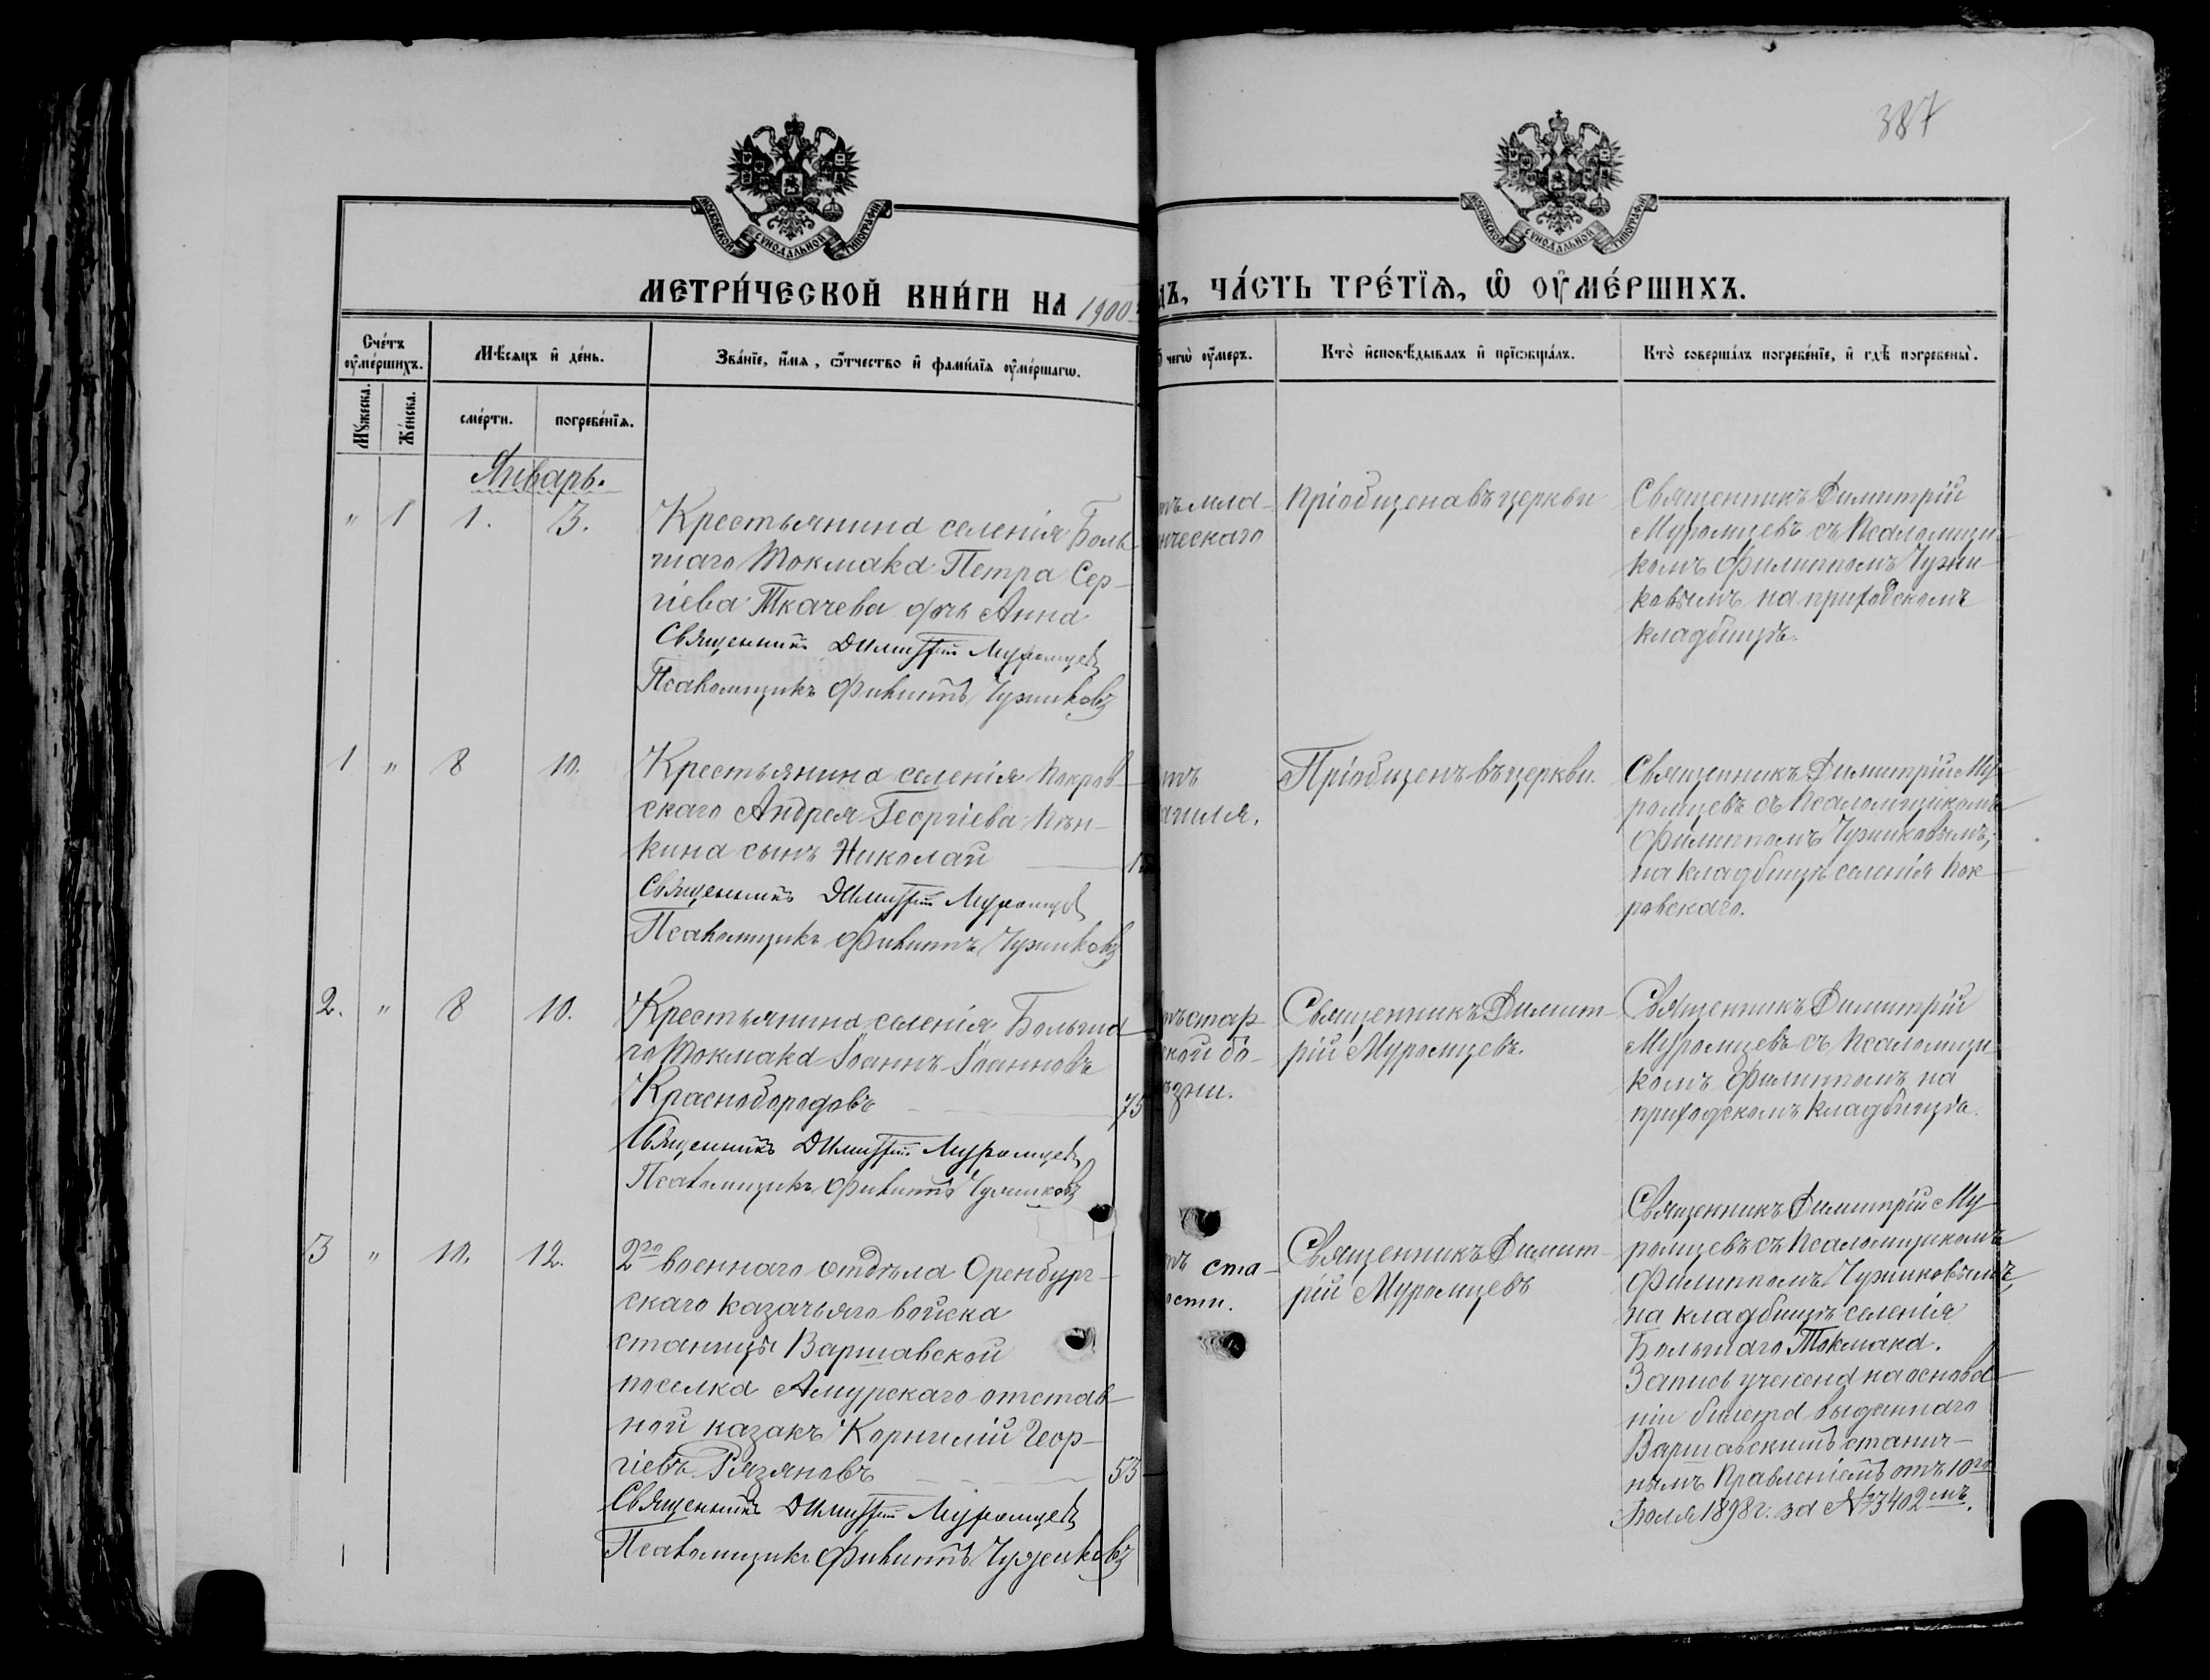 387
МОСКОВСКОЙ СУНОДАЛЬНОЙ ТИПОГРАФІИ
МОСКОВСКОЙ СУНОДАЛЬНОЙ ТИПОГРАФІИ
МЕТРИ́ЧЕСКОЙ КНИ́ГИ НА 1900
ДЪ, ЧА́СТЬ ТРЕ́ТЇѦ, Ѡ ОУ҆МЕ́РШИХЪ.
Сче́тъ оу҆ме́ршихъ.
Мꙋ́жеска.
Же́нска.
Мѣ́сяцъ и҆ де́нь.
сме́рти.
погребе́нїѧ.
Зва́нїе, и҆́мѧ, ѻ҆́тчество и҆ фами́лїѧ оу҆ме́ршагѡ.
чегѡ̀ оу҆́меръ.
Кто̀ и҆сповѣ́дывалъ и҆ прїѡбща́лъ.
Кто̀ соверша́лъ погребе́нїе, и҆ гдѣ̀ погребены̀.
Январь.
" 1 1. 3.
Крестьянина селенія Боль
шаго Токмака Петра Сер-
гіева Ткачева дочь Анна
Священникъ Димитрій Муромцевъ
Псаломщикъ Филиппъ Чузниковъ
тъ мла-
нческаго
Пріобщена въ церкви
Священникъ Димитрій
Муромцевъ съ Псаломщи-
комъ Филиппомъ Чузни-
ковымъ на приходскомъ
кладбищѣ.
1 " 8 10.
Крестьянина селенія Покров-
скаго Андрея Георгіева
кина сынъ Николай
Священникъ Димитрій Муромцевъ
Псаломщикъ Филиппъ Чузниковъ
тъ
ашля.
Пріобщенъ въ церкви.
Священникъ Димитрій Му-
ромцевъ съ Псаломщикомъ
Филиппомъ Чузниковымъ,
на кладбищѣ селенія Пок-
ровскаго.
2. " 8 10.
Крестьянина селенія Больша-
го Токмака Іоаннъ Іоанновъ
Краснобородовъ 75
Священникъ Димитрій Муромцевъ
Псаломщикъ Филиппъ Чузниковъ
тъ стар
ской бо-
ѣзни.
Священникъ Димит-
рій Муромцевъ.
Священникъ Димитрій
Муромцевъ съ Псаломщи-
комъ Филиппомъ на
приходскомъ кладбищѣ.
3 " 10. 12.
2го военнаго отдѣла Оренбург-
скаго казачьяго войска
станицы Варшавской
поселка Амурскаго отстав-
ной казакъ Корнилій Геор-
гіевъ Рязяновъ 53
Священникъ Димитрій Муромцевъ
Псаломщикъ Филиппъ Чузниковъ
тъ ста-
ости.
Священникъ Димит-
рій Муромцевъ
Священникъ Димитрій Му-
ромцевъ съ Псаломщикомъ
Филиппомъ Чузниковымъ,
на кладбищѣ селенія
Большаго Токмака.
Запись учинена на основа-
ніи билета выданнаго
Варшавскимъ станич-
нымъ Правленіемъ отъ 10го
Іюля 1898 г. за № 3402 мъ.